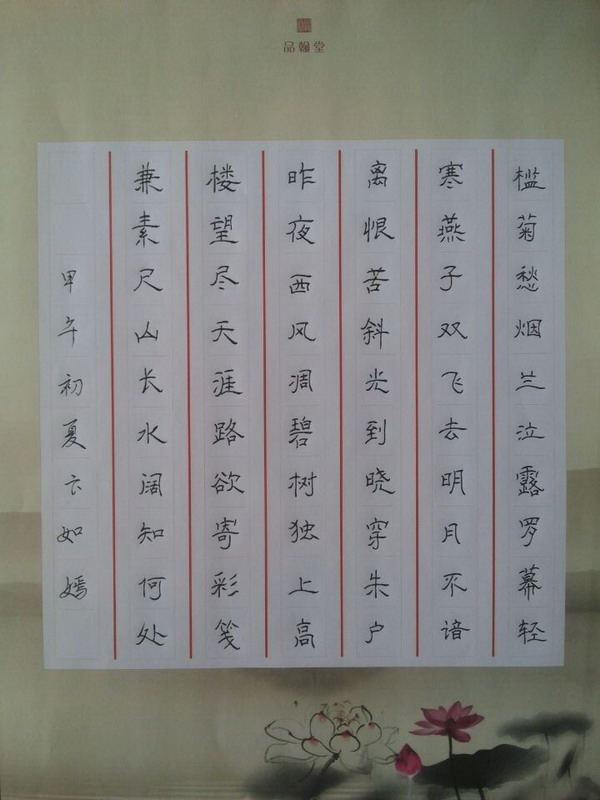 品翰堂
槛菊愁烟兰泣露罗幕轻
寒燕子双飞去明月不谙
离恨苦斜光到晓穿朱户
昨夜西风凋碧树独上高
楼望尽天涯路欲寄彩笺
兼素尺山长水阔知何处
甲午初夏云如嫣